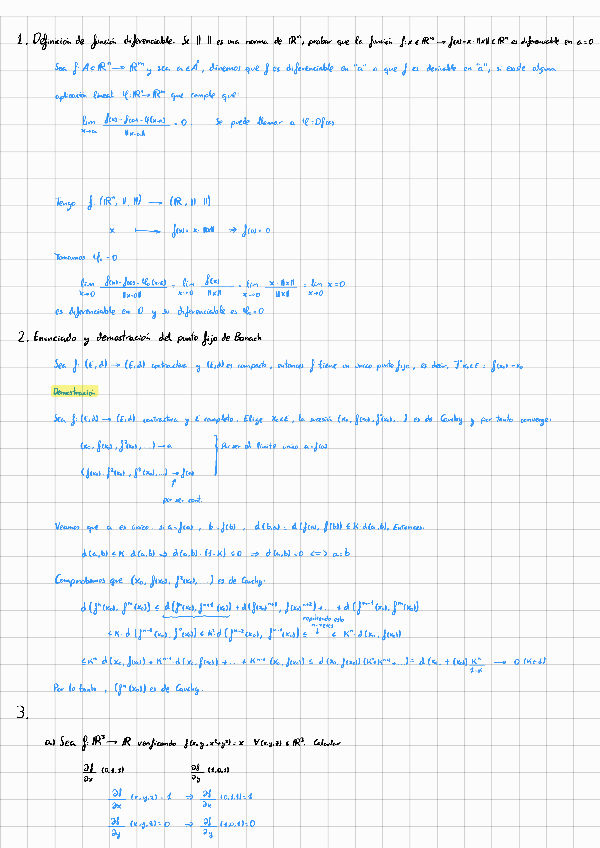 1. Definición de función diferenciable. Se || || es una norma de ℝⁿ, probar que la función f: x ∈ ℝⁿ → f(x) = x·||x|| ∈ ℝⁿ es diferenciable en a=0
Sea f: A⊂ℝⁿ → ℝᵐ y sea a∈Å, diremos que f es diferenciable en "a" o que f es derivable en "a", si existe alguna
aplicación lineal φ: ℝⁿ→ℝᵐ que cumple que
lim x→a (f(x)-f(a)-φ(x-a))/||x-a|| = 0 Se puede llamar a φ=Df(a)
Tengo f: (ℝⁿ, || ||) → (ℝ, || ||)
x ⟼ f(x) = x·||x|| ⇒ f(0)=0
Tomamos φ₀=0
lim x→0 (f(x)-f(0)-φ₀(x-0))/||x-0|| = lim x→0 f(x)/||x|| = lim x→0 x·||x||/||x|| = lim x→0 x=0
es diferenciable en 0 y su diferenciable es φ₀=0
2. Enunciado y demostración del punto fijo de Banach
Sea f: (E,d) → (E,d) contractiva y (E,d) es completo, entonces f tiene un único punto fijo, es decir, ∃ x₀∈E : f(x₀)=x₀
Demostración
Sea f: (E,d) → (E,d) contractiva y E completo. Elige x₀∈E, la sucesión (x₀, f(x₀), f²(x₀), ...) es de Cauchy y por tanto converge:
(x₀, f(x₀), f²(x₀), ...) → a } Por ser el límite único a=f(a)
(f(x₀), f²(x₀), f³(x₀), ...) → f(a)
por ser cont.
Veamos que a es único. si a=f(a), b=f(b), d(b,a) = d(f(a), f(b)) ≤ K·d(a,b). Entonces:
d(a,b) ≤ K·d(a,b) ⇒ d(a,b)·(1-K) ≤ 0 ⇒ d(a,b)=0 <=> a=b
Comprobamos que (x₀, f(x₀), f²(x₀), ...) es de Cauchy:
d(fⁿ(x₀), fᵐ(x₀)) ≤ d(fⁿ(x₀), fⁿ⁺¹(x₀)) + d(f(x₀)ⁿ⁺¹, f(x₀)ⁿ⁺²) + ... + d(fᵐ⁻¹(x₀), fᵐ(x₀))
repitiendo esto n-veces
≤ K·d(fⁿ⁻¹(x₀), fⁿ(x₀)) ≤ K²·d(fⁿ⁻²(x₀), fⁿ⁻¹(x₀)) ≤ ... ≤ Kⁿ·d(x₀, f(x₀))
≤ Kⁿ d(x₀, f(x₀)) + Kⁿ⁺¹ d(x₀, f(x₀)) + ... + Kᵐ⁻¹(x₀, f(x₀)) ≤ d(x₀, f(x₀))(Kⁿ+Kⁿ⁺¹+...) = d(x₀, f(x₀)) Kⁿ/1-K → 0 (K<1)
Por lo tanto, (fⁿ(x₀)) es de Cauchy.
3.
a) Sea f: ℝ³ → ℝ verificando f(x,y,x²+y²) = x ∀(x,y,z)∈ℝ³. Calcular
∂f/∂x (0,1,1) ∂f/∂y (1,0,1)
∂f/∂x (x,y,z) = 1 ⇒ ∂f/∂x (0,1,1)=1
∂f/∂y (x,y,z)=0 ⇒ ∂f/∂y (1,0,1)=0